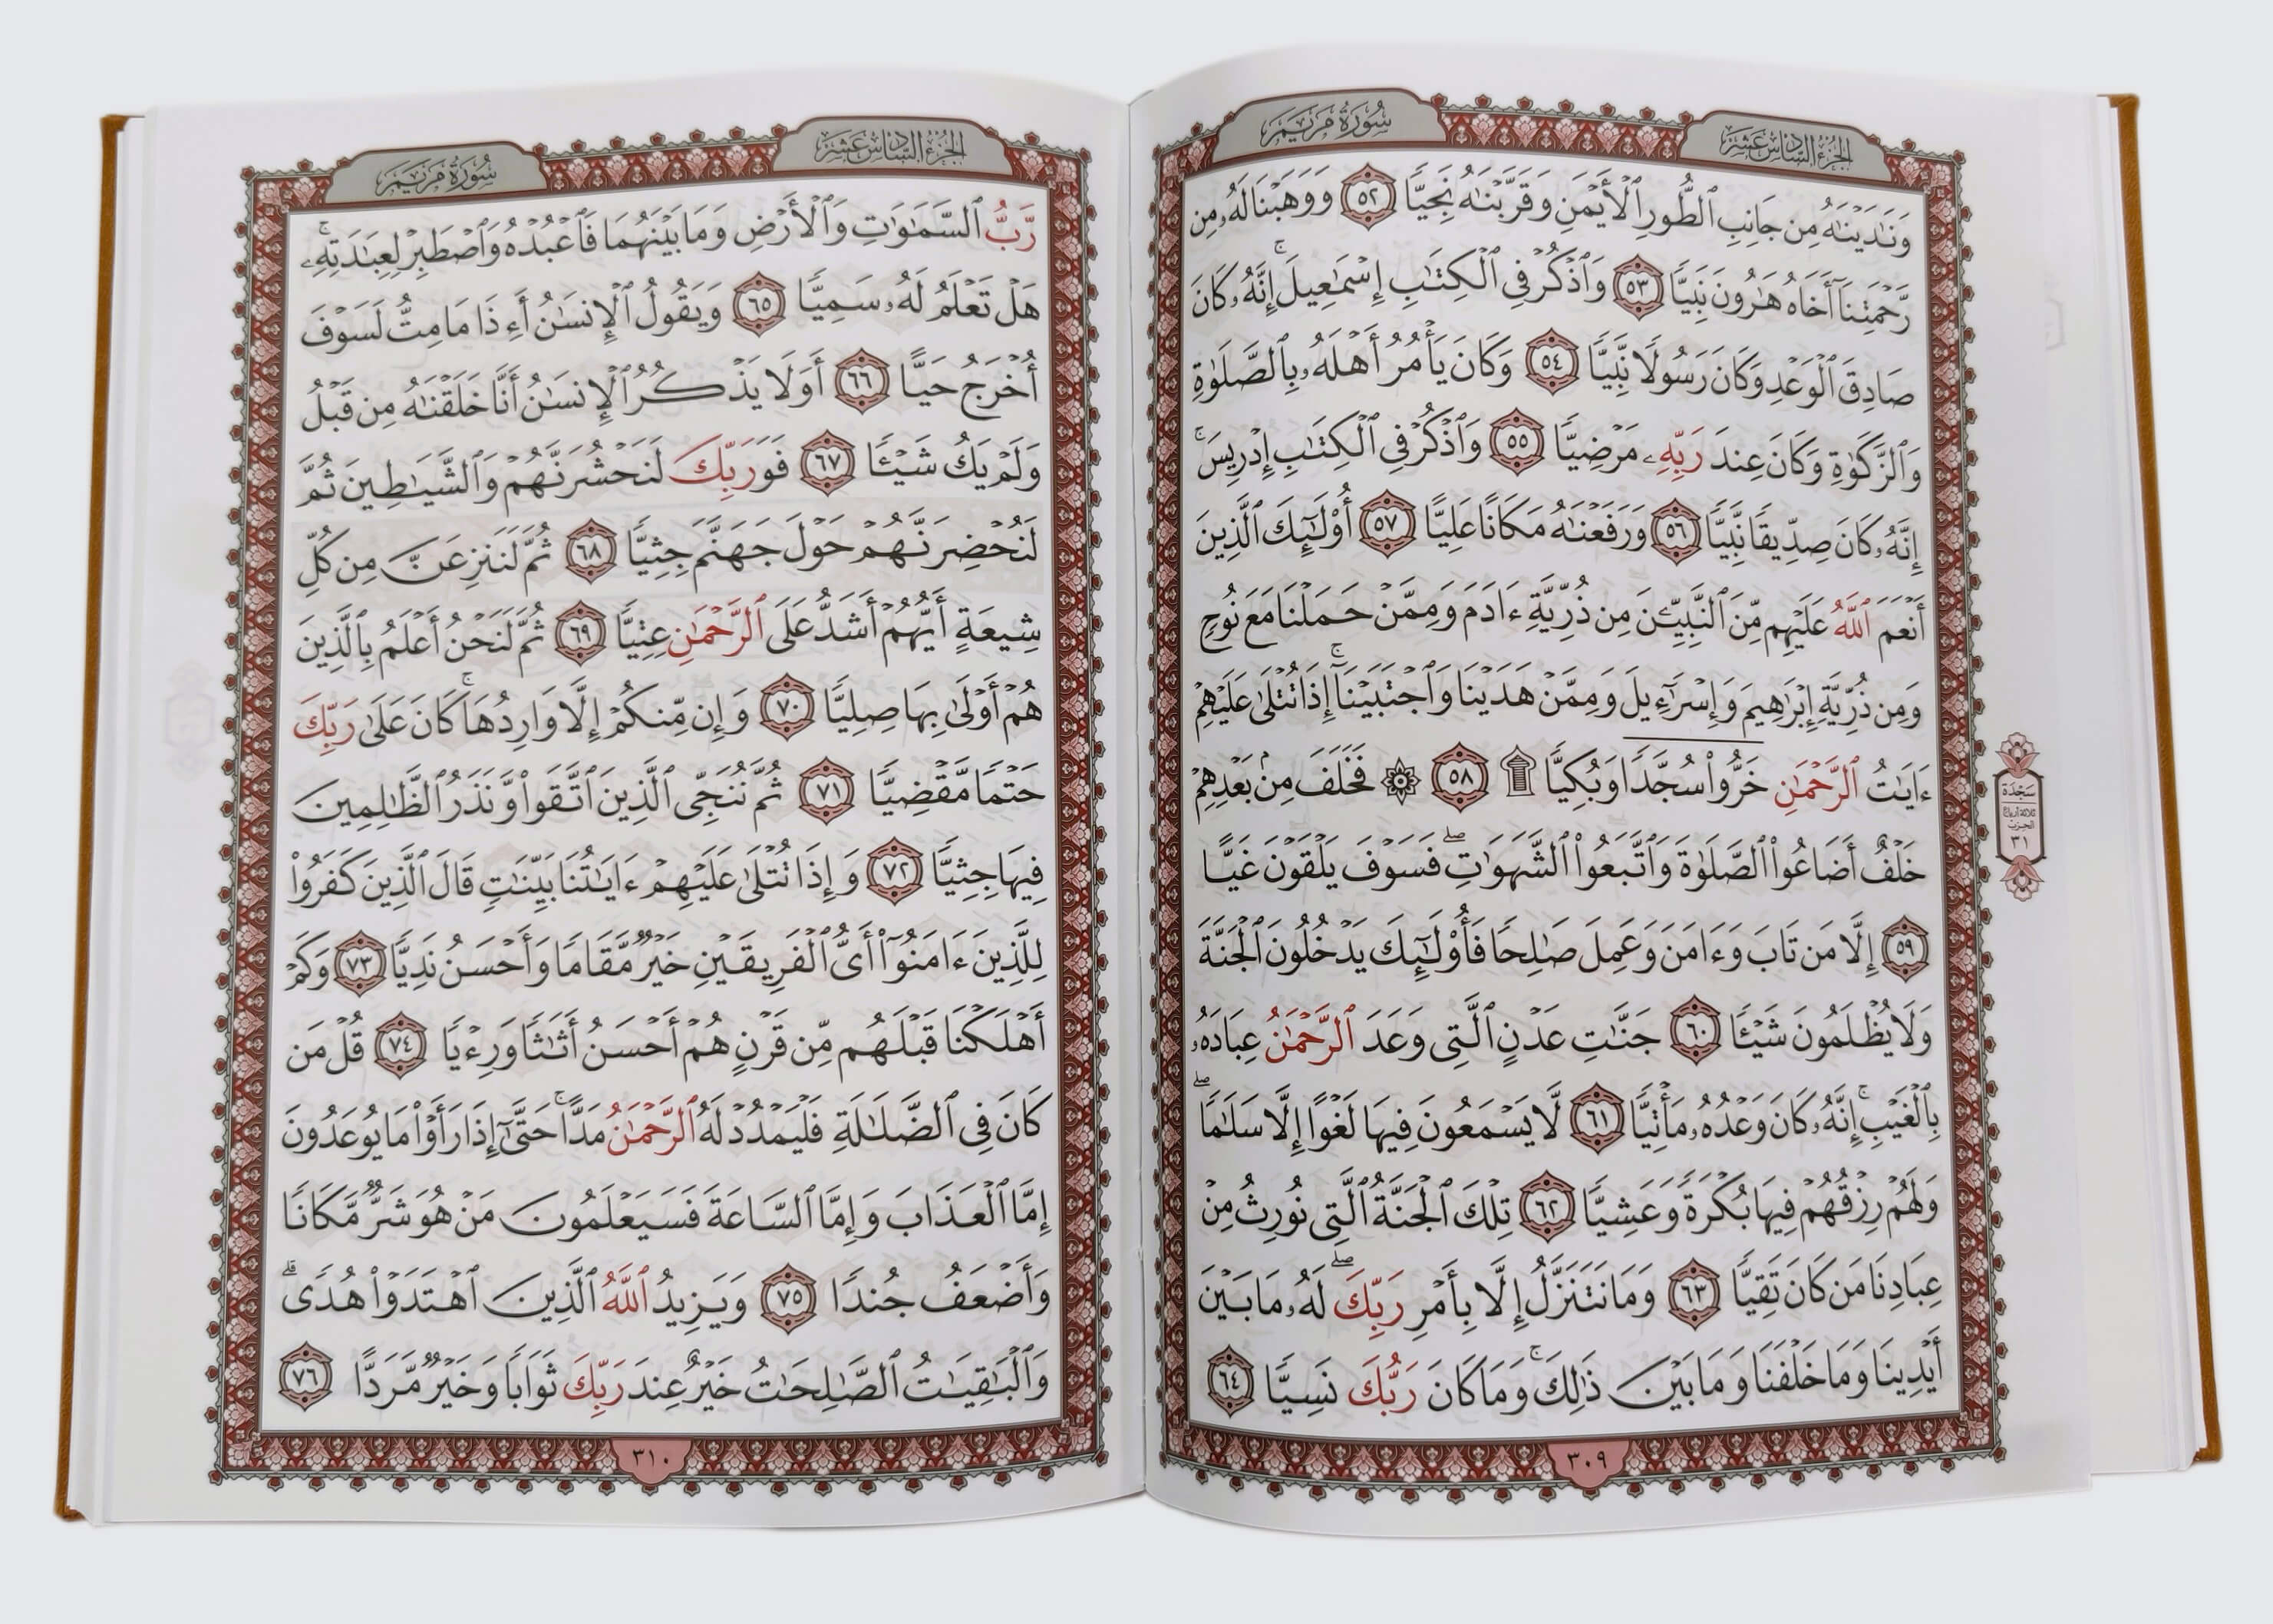 الجزء السادس عشر
سورة مريم
وَنَٰدَيْنَٰهُ مِن جَانِبِ ٱلطُّورِ ٱلْأَيْمَنِ وَقَرَّبْنَٰهُ نَجِيًّا ٥٢ وَوَهَبْنَا لَهُۥ مِن
رَّحْمَتِنَآ أَخَاهُ هَٰرُونَ نَبِيًّا ٥٣ وَٱذْكُرْ فِى ٱلْكِتَٰبِ إِسْمَٰعِيلَ ۚ إِنَّهُۥ كَانَ
صَادِقَ ٱلْوَعْدِ وَكَانَ رَسُولًا نَّبِيًّا ٥٤ وَكَانَ يَأْمُرُ أَهْلَهُۥ بِٱلصَّلَوٰةِ
وَٱلزَّكَوٰةِ وَكَانَ عِندَ رَبِّهِۦ مَرْضِيًّا ٥٥ وَٱذْكُرْ فِى ٱلْكِتَٰبِ إِدْرِيسَ ۚ
إِنَّهُۥ كَانَ صِدِّيقًا نَّبِيًّا ٥٦ وَرَفَعْنَٰهُ مَكَانًا عَلِيًّا ٥٧ أُو۟لَٰٓئِكَ ٱلَّذِينَ
أَنْعَمَ ٱللَّهُ عَلَيْهِم مِّنَ ٱلنَّبِيِّـۧنَ مِن ذُرِّيَّةِ ءَادَمَ وَمِمَّنْ حَمَلْنَا مَعَ نُوحٍ
وَمِن ذُرِّيَّةِ إِبْرَٰهِيمَ وَإِسْرَٰٓءِيلَ وَمِمَّنْ هَدَيْنَا وَٱجْتَبَيْنَآ ۚ إِذَا تُتْلَىٰ عَلَيْهِمْ
ءَايَٰتُ ٱلرَّحْمَٰنِ خَرُّوا۟ سُجَّدًا وَبُكِيًّا ۩ ٥٨ ۞ فَخَلَفَ مِنۢ بَعْدِهِمْ
خَلْفٌ أَضَاعُوا۟ ٱلصَّلَوٰةَ وَٱتَّبَعُوا۟ ٱلشَّهَوَٰتِ ۖ فَسَوْفَ يَلْقَوْنَ غَيًّا
٥٩ إِلَّا مَن تَابَ وَءَامَنَ وَعَمِلَ صَٰلِحًا فَأُو۟لَٰٓئِكَ يَدْخُلُونَ ٱلْجَنَّةَ
وَلَا يُظْلَمُونَ شَيْـًٔا ٦٠ جَنَّٰتِ عَدْنٍ ٱلَّتِى وَعَدَ ٱلرَّحْمَٰنُ عِبَادَهُۥ
بِٱلْغَيْبِ ۚ إِنَّهُۥ كَانَ وَعْدُهُۥ مَأْتِيًّا ٦١ لَّا يَسْمَعُونَ فِيهَا لَغْوًا إِلَّا سَلَٰمًا ۖ
وَلَهُمْ رِزْقُهُمْ فِيهَا بُكْرَةً وَعَشِيًّا ٦٢ تِلْكَ ٱلْجَنَّةُ ٱلَّتِى نُورِثُ مِنْ
عِبَادِنَا مَن كَانَ تَقِيًّا ٦٣ وَمَا نَتَنَزَّلُ إِلَّا بِأَمْرِ رَبِّكَ ۖ لَهُۥ مَا بَيْنَ
أَيْدِينَا وَمَا خَلْفَنَا وَمَا بَيْنَ ذَٰلِكَ ۚ وَمَا كَانَ رَبُّكَ نَسِيًّا ٦٤
٣٠٩
سجدة
ثلاثة أرباع
الحزب
٣١
الجزء السادس عشر
سورة مريم
رَّبُّ ٱلسَّمَٰوَٰتِ وَٱلْأَرْضِ وَمَا بَيْنَهُمَا فَٱعْبُدْهُ وَٱصْطَبِرْ لِعِبَٰدَتِهِۦ ۚ
هَلْ تَعْلَمُ لَهُۥ سَمِيًّا ٦٥ وَيَقُولُ ٱلْإِنسَٰنُ أَءِذَا مَا مِتُّ لَسَوْفَ
أُخْرَجُ حَيًّا ٦٦ أَوَلَا يَذْكُرُ ٱلْإِنسَٰنُ أَنَّا خَلَقْنَٰهُ مِن قَبْلُ
وَلَمْ يَكُ شَيْـًٔا ٦٧ فَوَرَبِّكَ لَنَحْشُرَنَّهُمْ وَٱلشَّيَٰطِينَ ثُمَّ
لَنُحْضِرَنَّهُمْ حَوْلَ جَهَنَّمَ جِثِيًّا ٦٨ ثُمَّ لَنَنزِعَنَّ مِن كُلِّ
شِيعَةٍ أَيُّهُمْ أَشَدُّ عَلَى ٱلرَّحْمَٰنِ عِتِيًّا ٦٩ ثُمَّ لَنَحْنُ أَعْلَمُ بِٱلَّذِينَ
هُمْ أَوْلَىٰ بِهَا صِلِيًّا ٧٠ وَإِن مِّنكُمْ إِلَّا وَارِدُهَا ۚ كَانَ عَلَىٰ رَبِّكَ
حَتْمًا مَّقْضِيًّا ٧١ ثُمَّ نُنَجِّى ٱلَّذِينَ ٱتَّقَوا۟ وَّنَذَرُ ٱلظَّٰلِمِينَ
فِيهَا جِثِيًّا ٧٢ وَإِذَا تُتْلَىٰ عَلَيْهِمْ ءَايَٰتُنَا بَيِّنَٰتٍ قَالَ ٱلَّذِينَ كَفَرُوا۟
لِلَّذِينَ ءَامَنُوٓا۟ أَىُّ ٱلْفَرِيقَيْنِ خَيْرٌ مَّقَامًا وَأَحْسَنُ نَدِيًّا ٧٣ وَكَمْ
أَهْلَكْنَا قَبْلَهُم مِّن قَرْنٍ هُمْ أَحْسَنُ أَثَٰثًا وَرِءْيًا ٧٤ قُلْ مَن
كَانَ فِى ٱلضَّلَٰلَةِ فَلْيَمْدُدْ لَهُ ٱلرَّحْمَٰنُ مَدًّا ۚ حَتَّىٰٓ إِذَا رَأَوْا۟ مَا يُوعَدُونَ
إِمَّا ٱلْعَذَابَ وَإِمَّا ٱلسَّاعَةَ فَسَيَعْلَمُونَ مَنْ هُوَ شَرٌّ مَّكَانًا
وَأَضْعَفُ جُندًا ٧٥ وَيَزِيدُ ٱللَّهُ ٱلَّذِينَ ٱهْتَدَوْا۟ هُدًى ۗ
وَٱلْبَٰقِيَٰتُ ٱلصَّٰلِحَٰتُ خَيْرٌ عِندَ رَبِّكَ ثَوَابًا وَخَيْرٌ مَّرَدًّا ٧٦
٣١٠